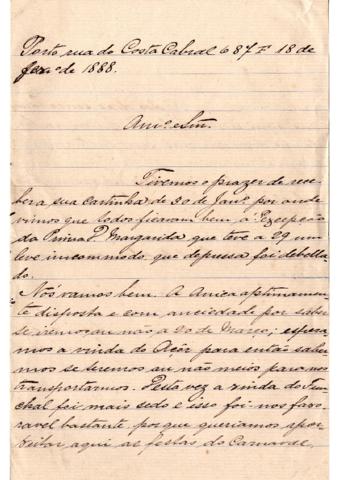 Porto rua do Costa Cabral 687 F 18 de
fevr.o de 1888.
Am.o e Snr.
Tivemos o prazer de rece
ber a sua cartinha de 30 de Jan.o por onde
vimos que todos ficavam bem á Excepção
da Prima D. Margarida que teve a 29 um
leve incommodo que depressa foi debella
do.
Nós vamos bem. A Anica optimamen
te disposta e com anciedade por saber
se iremos ou não a 20 de Março; espera
mos a vinda do Açôr para então saber
mos se teremos ou não meios para nos
transportarmos. Desta vez a vinda do Fun
chal foi mais sedo e isso foi nos favo
ravel bastante, por que queriamos apro
veitar aqui as festas do Carnaval,